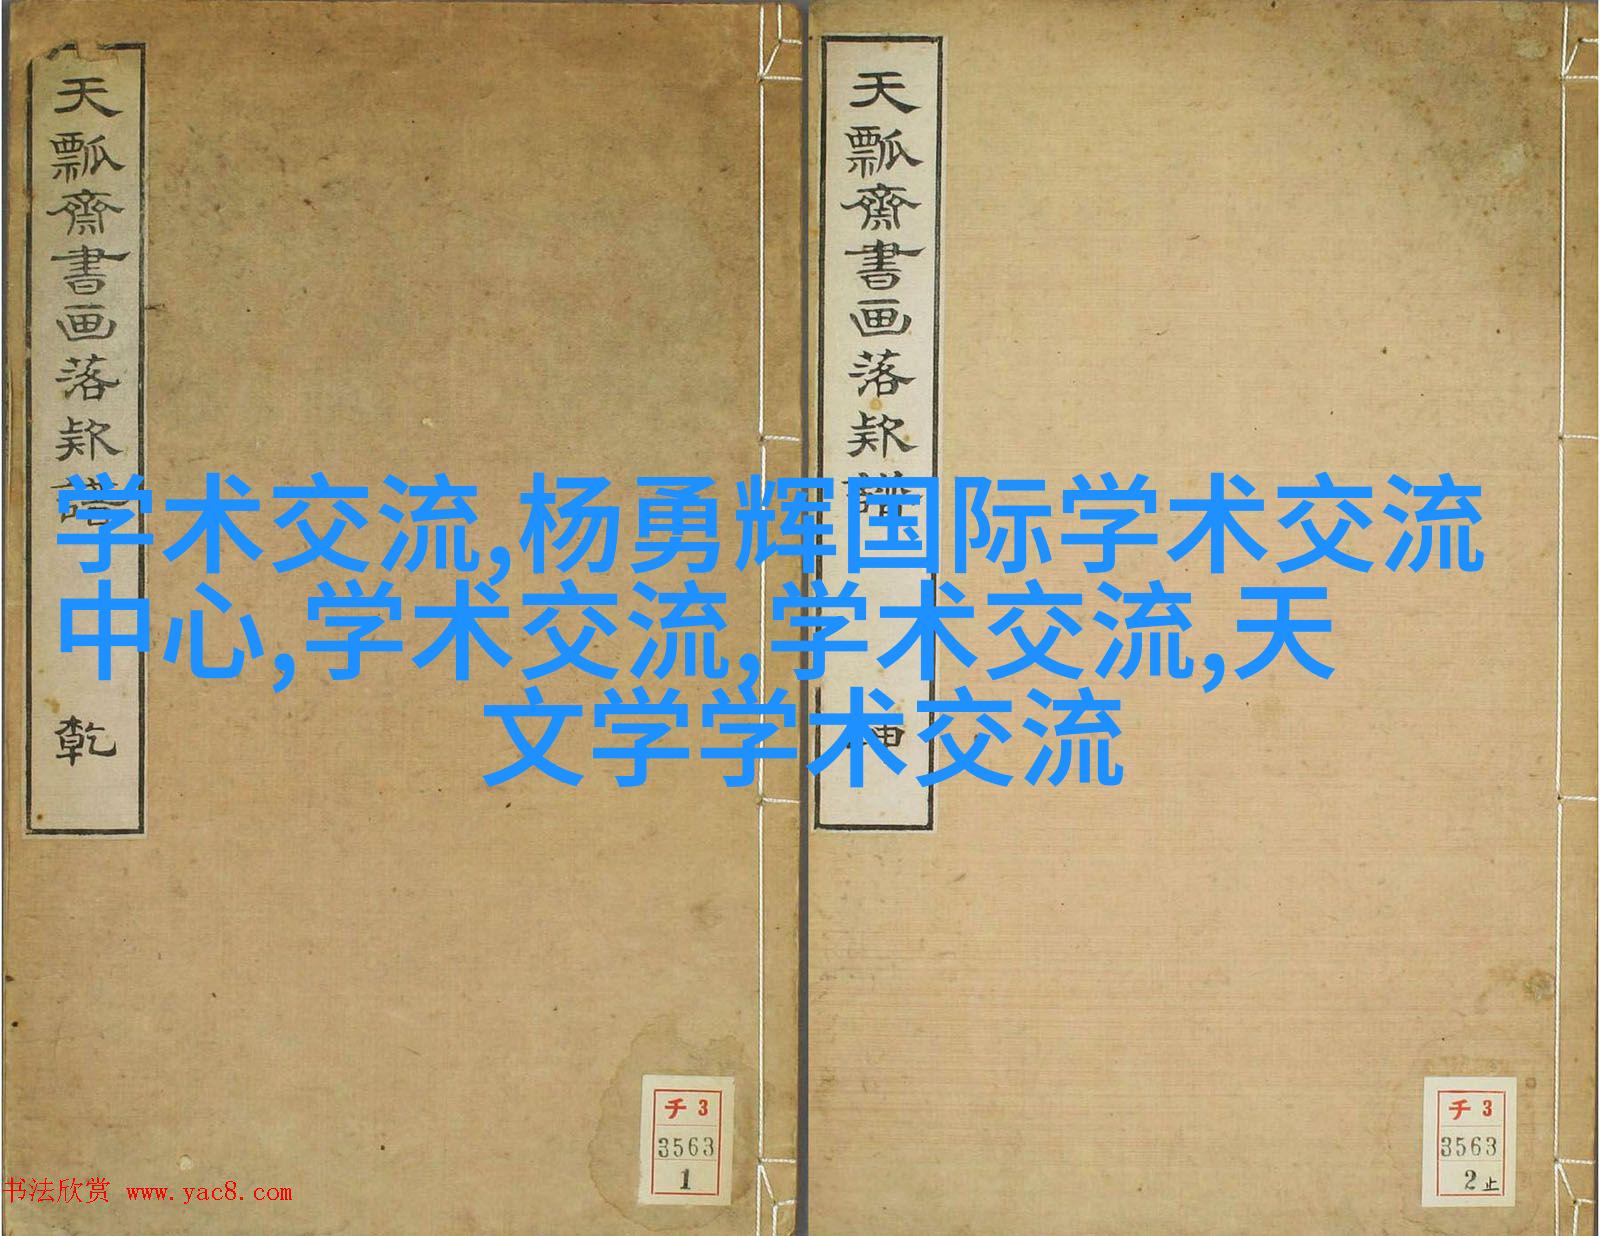 天瓢齋書画落欵譜
乾
天瓢齋書画落欵譜
坤
学术交流,杨勇辉国际学术交流
中心,学术交流,学术交流,天
文学学术交流
チ 3
3563
1
チ 3
3563
2止
书法欣赏 www.yac8.com